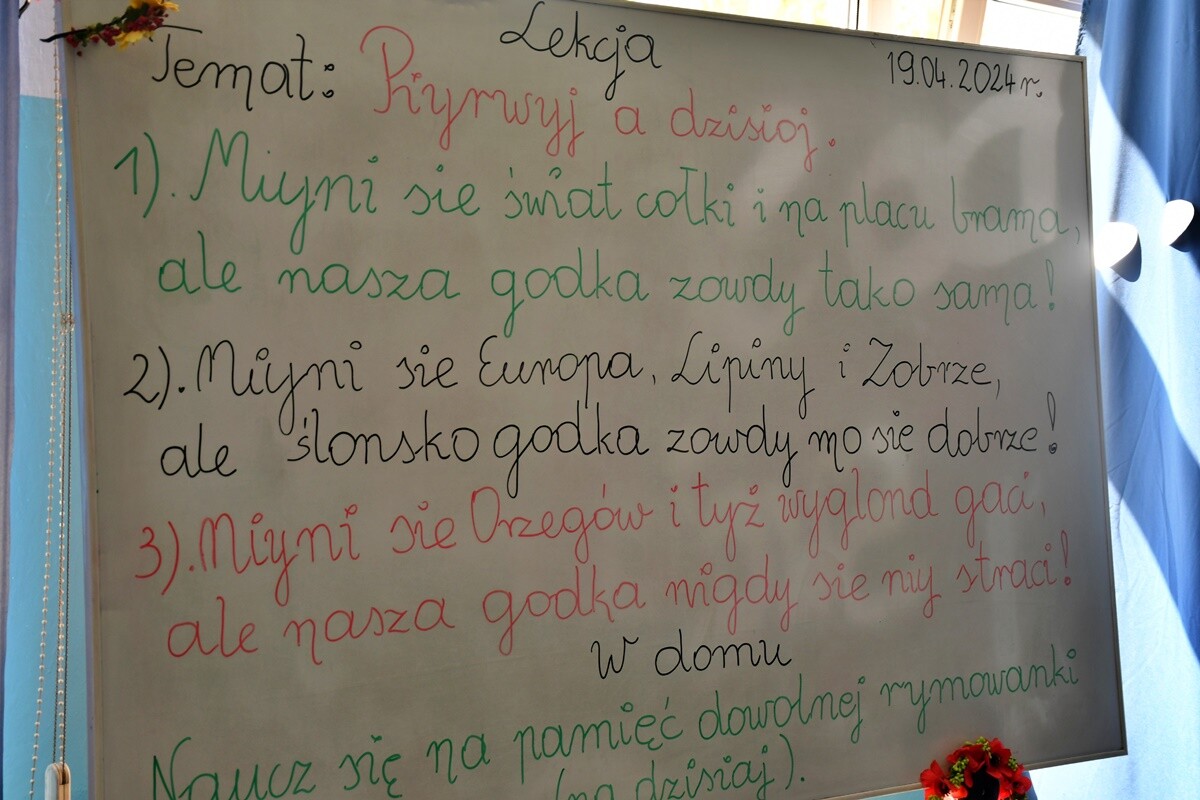 Lekcja
19.04.2024 r.
Temat: Piyrwyj a dzisioj.
1). Miyni sie świat cołki i na placu brama,
ale nasza godka zowdy tako sama!
2). Miyni sie Europa, Lipiny i Zobrze,
ale ślonsko godka zowdy mo sie dobrze!
3). Miyni sie Orzegów i tyż wyglond gaci,
ale nasza godka nigdy sie niy straci!
W domu
Naucz się na pamięć dowolnej rymowanki
(na dzisiaj).